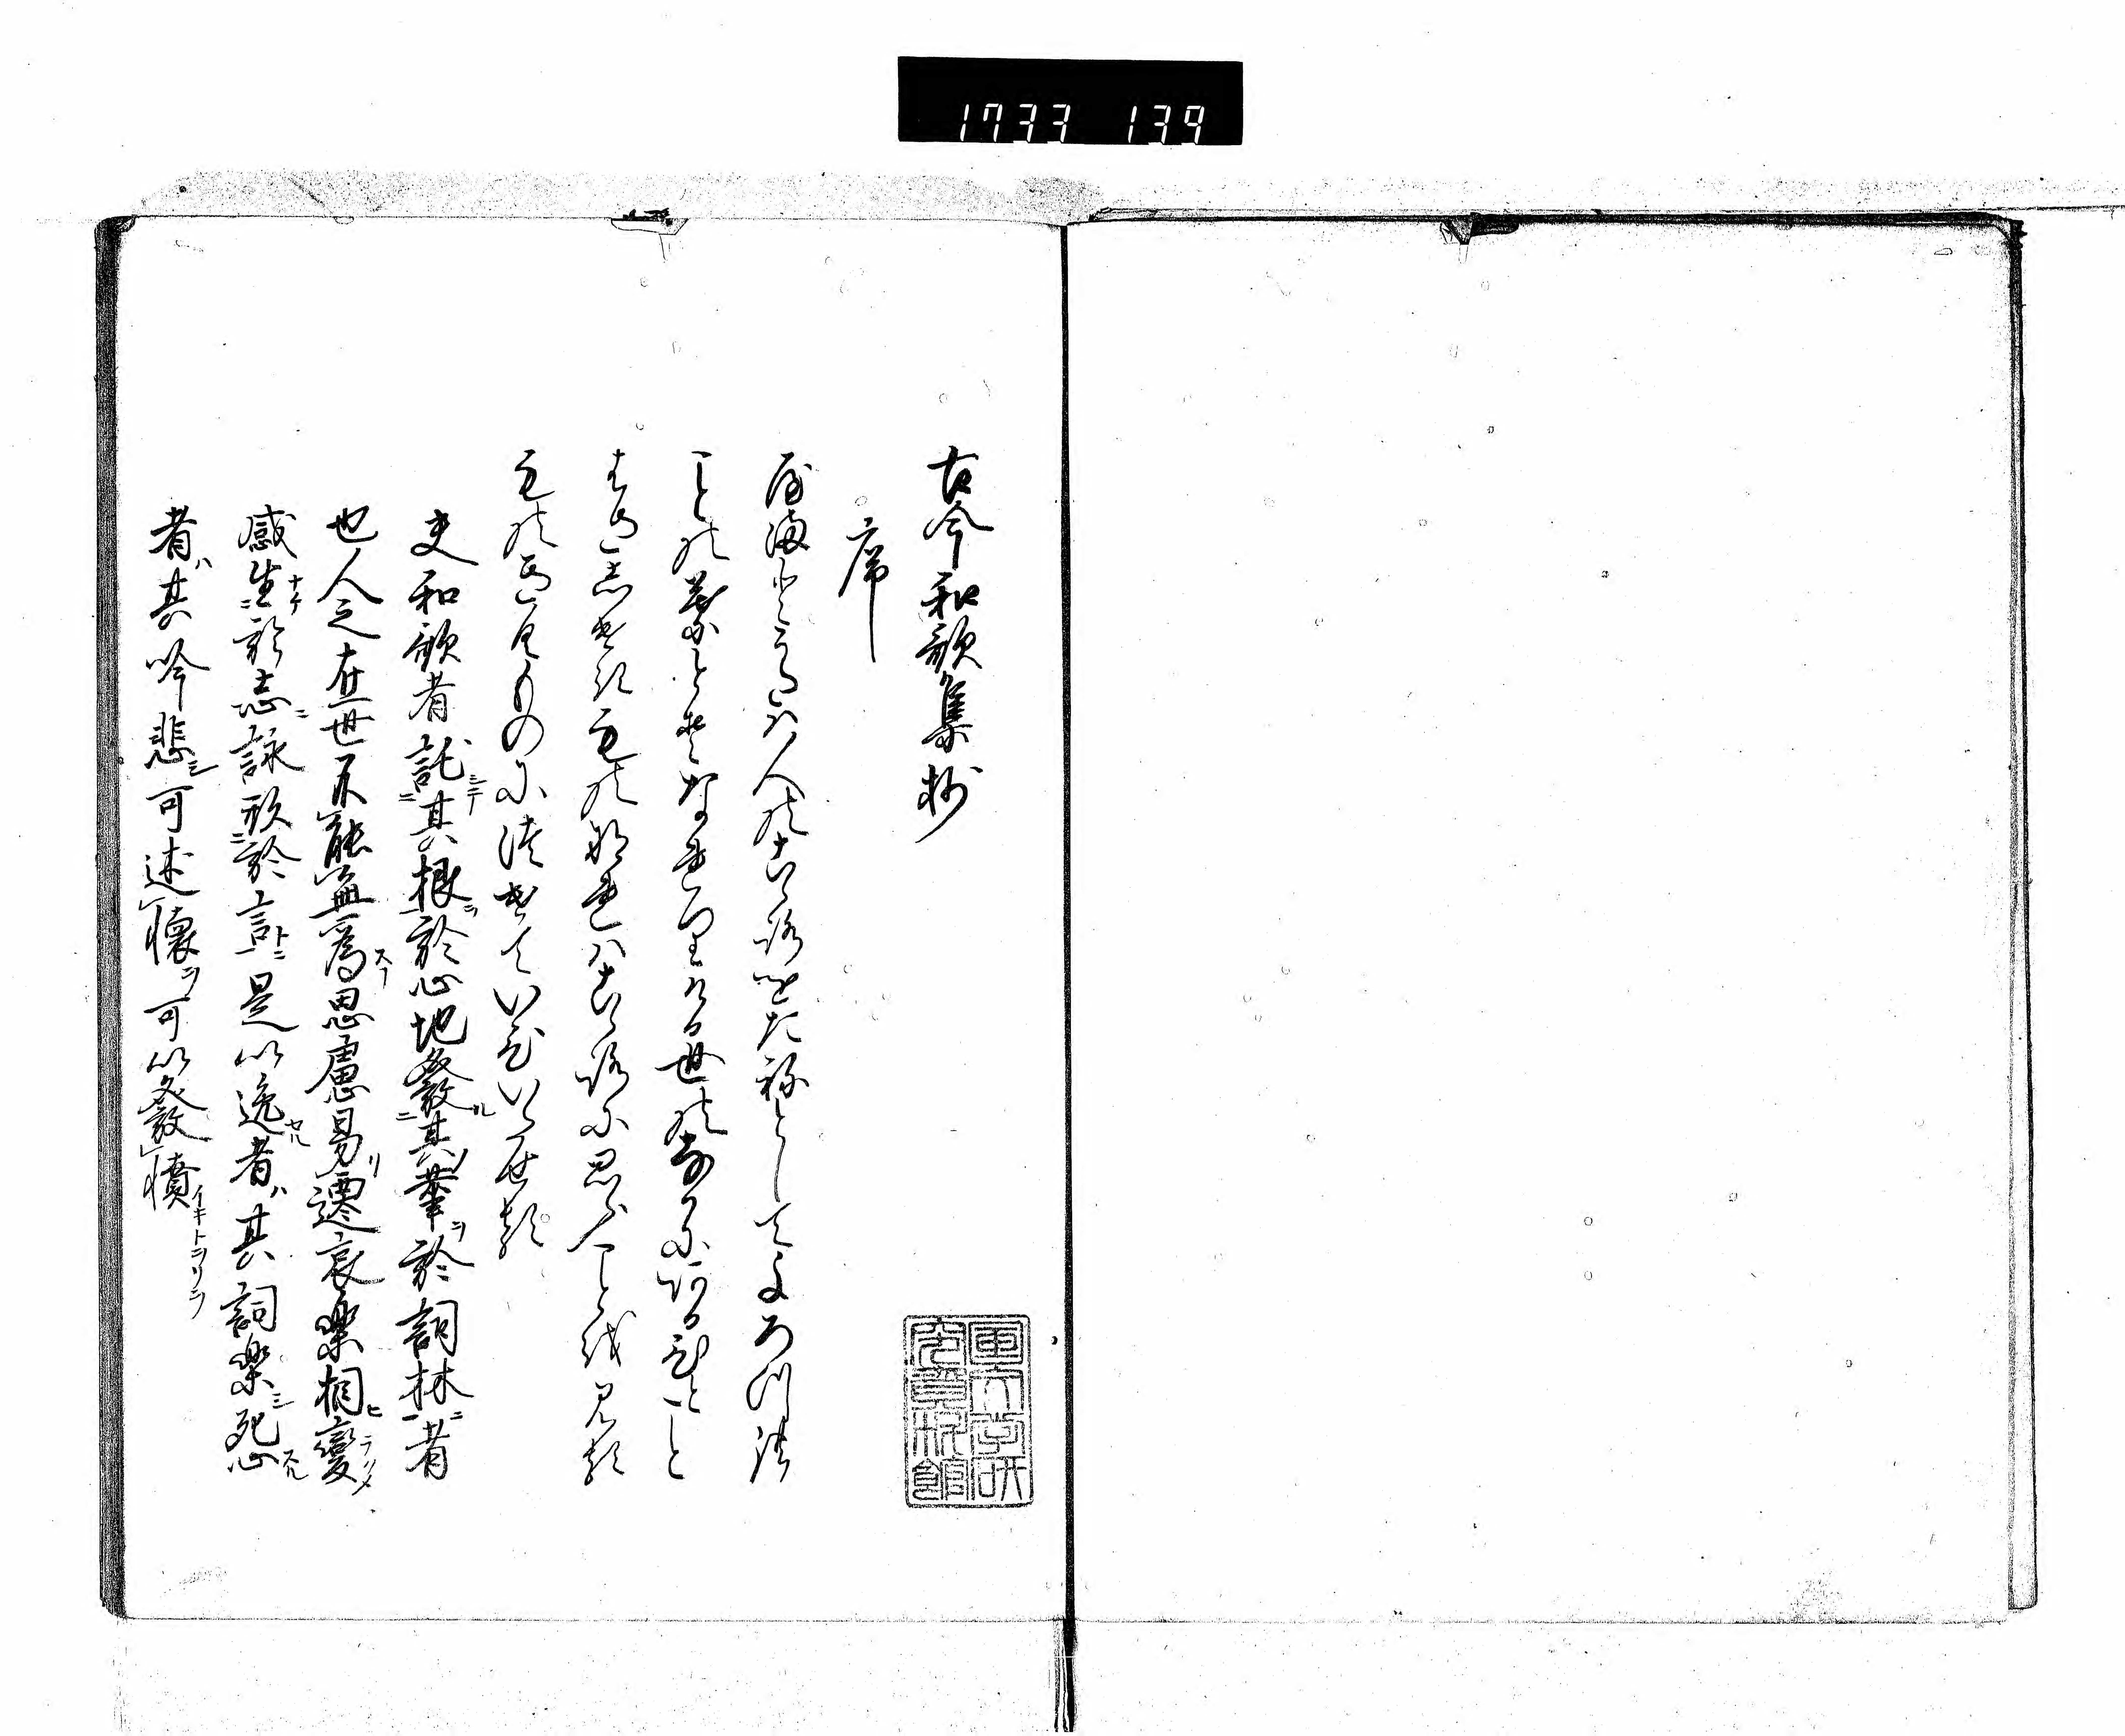 1733 139
古今和歌集抄
序
やまとうたは人のこゝろをたねとしてよろつ
ことの葉とそなれりける世中にあるひとこと
わさしけきものなれはこゝろに思ふことを見る
ものきくものにつけていひいたせる
夫和歌者託其根於心地發其華於詞林者
也人之在世不能無為思慮易遷哀樂相變
感生於志詠形於言是以逸者其詞樂怨
者其吟悲可述懐可以發憤
国文学研
究資料館